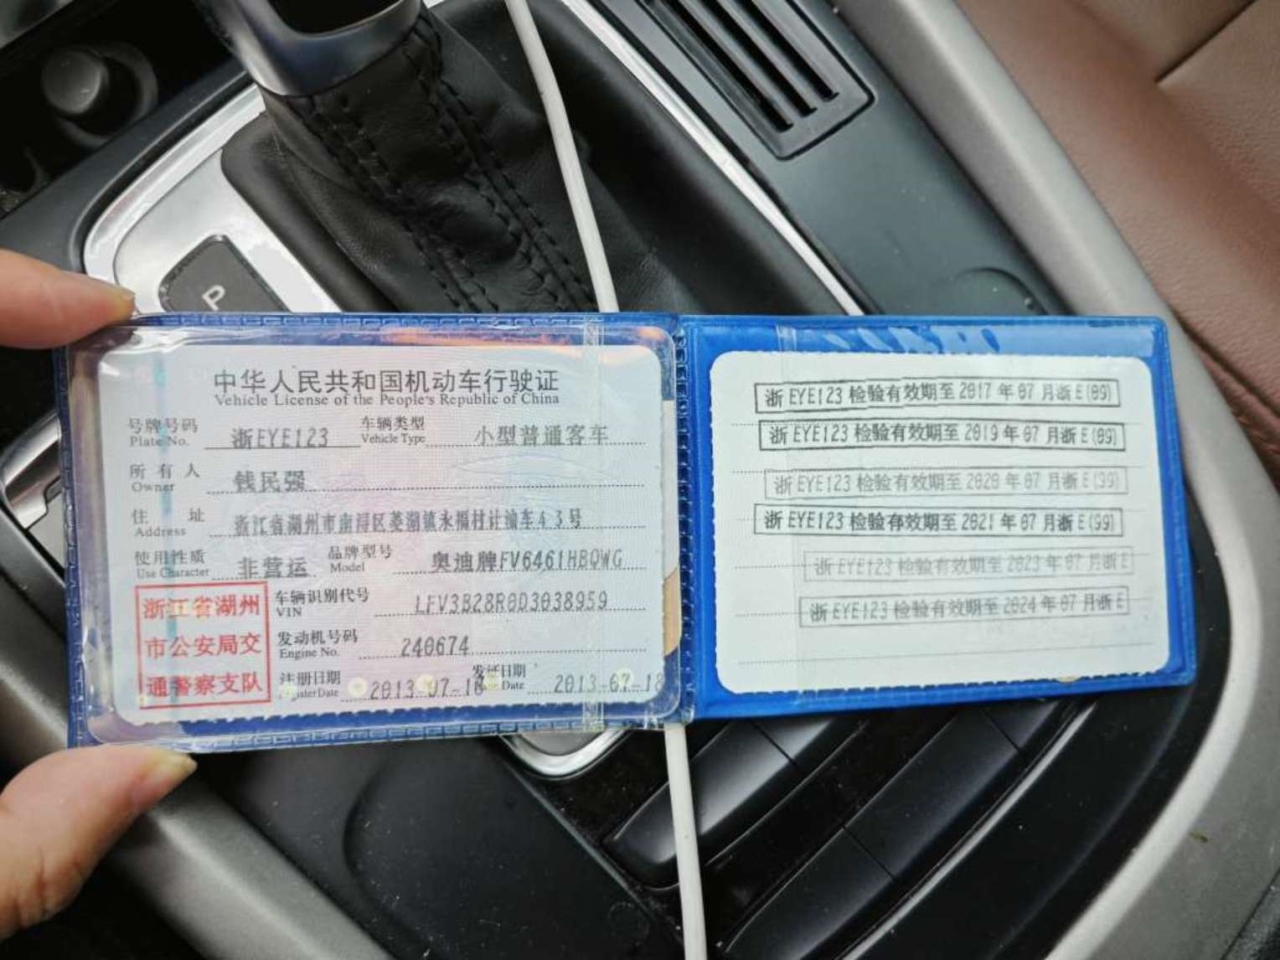 P
中华人民共和国机动车行驶证
Vehicle License of the People's Republic of China
号牌号码 浙EYE123 车辆类型 小型普通客车
Plate No. Vehicle Type
所有人 钱民强
Owner
住址 浙江省湖州市南浔区菱湖镇永福村计油车43号
Address
使用性质 非营运 品牌型号 奥迪牌FV6461HBQWG
Use Character Model
浙江省湖州
市公安局交
通警察支队
车辆识别代号 LFV3B28R0D3038959
VIN
发动机号码 240674
Engine No.
注册日期 2013-07-18 发证日期 2013-07-18
Register Date Date
浙EYE123 检验有效期至 2017 年 07 月浙E(09)
浙EYE123 检验有效期至 2019 年 07 月浙E(09)
浙EYE123 检验有效期至 2020 年 07 月浙E(99)
浙EYE123 检验有效期至 2021 年 07 月浙E(99)
浙EYE123 检验有效期至 2023 年 07 月浙E
浙EYE123 检验有效期至 2024 年 07 月浙E